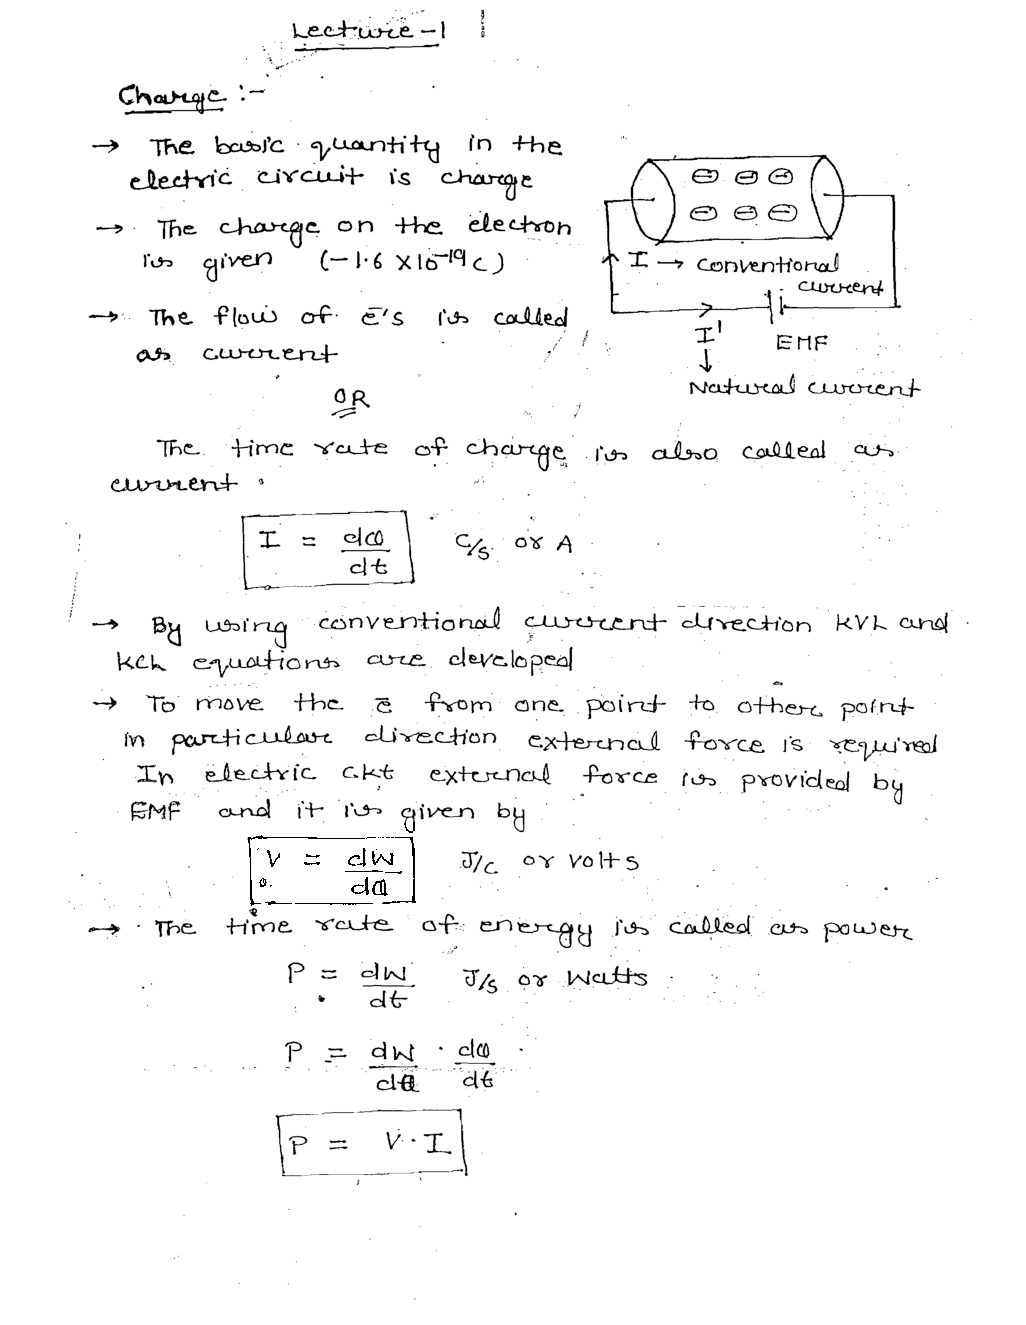 Lecture-1
Charge :-
→ The basic quantity in the
electric circuit is charge
→ The charge on the electron
is given (-1.6 x 10⁻¹⁹ C)
→ The flow of ē's is called
as current
OR
I → conventional
current
I'
EMF
↓
Natural current
The time rate of charge is also called as
current.
I = dQ/dt C/s or A
→ By using conventional current direction KVL and
KCL equations are developed
→ To move the ē from one point to other point
in particular direction external force is required
In electric ckt external force is provided by
EMF and it is given by
V = dW/dQ J/C or volts
→ The time rate of energy is called as power
P = dW/dt J/s or Watts
P = dW/dQ · dQ/dt
P = V·I